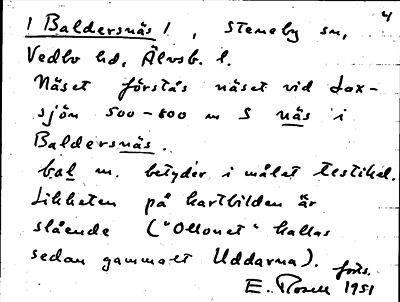 4
/ Baldersnäs / , Steneby sn,
Vedbo hd, Älvsb. l.
Näset förstås näset vid Lax-
sjön 500-800 m S näs i
Baldersnäs.
bal m. betyder i målet testikel.
Likheten på kartbilden är
slående ("Ollonet" kallas
sedan gammalt Uddarna). forts.
E. Rosell 1951